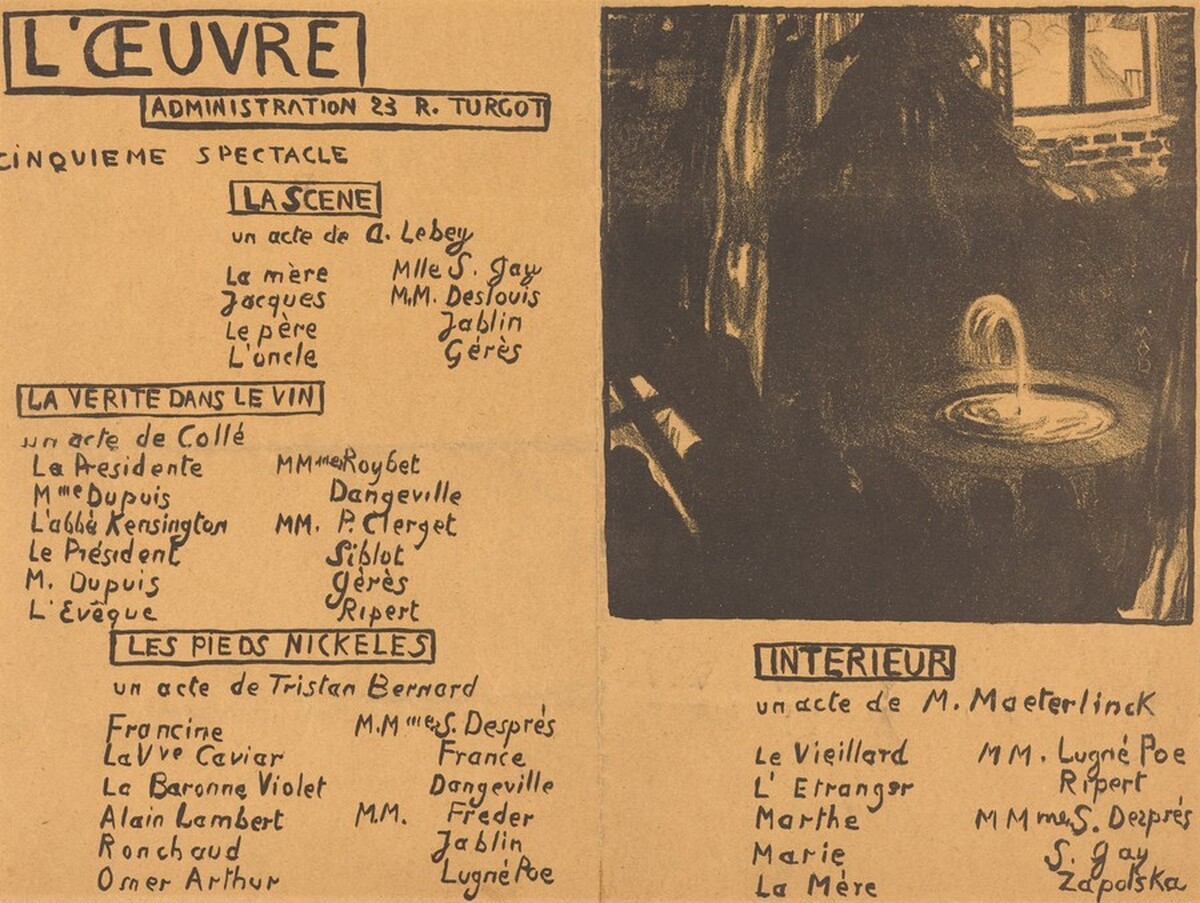 L'ŒUVRE
ADMINISTRATION 23 R. TURGOT
CINQUIEME SPECTACLE
LA SCENE
un acte de A. Lebey
La mère Mlle S. Gay
Jacques M.M. Deslouis
Le père Jablin
L'oncle Gérès
LA VERITE DANS LE VIN
un acte de Collé
La Presidente MMmes Roybet
Mme Dupuis Dangeville
L'abbè Kensington MM. P. Clerget
Le Président Siblot
M. Dupuis Gérès
L'Evêque Ripert
LES PIEDS NICKELES
un acte de Tristan Bernard
Francine M.Mmes S. Després
La Vve Caviar France
La Baronne Violet Dangeville
Alain Lambert M.M. Freder
Ronchaud Jablin
Omer Arthur Lugné Poe
INTERIEUR
un acte de M. Maeterlinck
Le Vieillard MM. Lugné Poe
L'Etranger Ripert
Marthe MMmes S. Després
Marie S. Gay
La Mère Zapolska